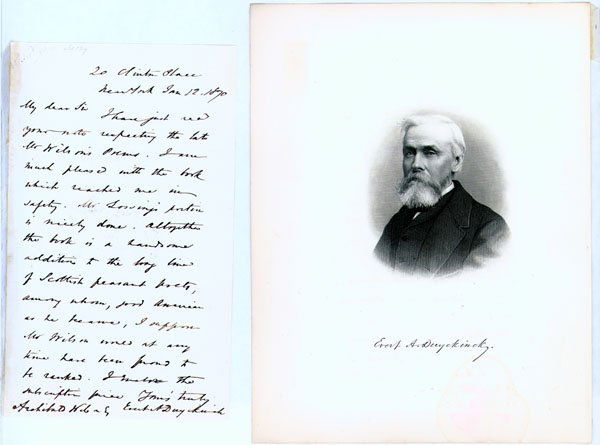 20 Clinton Place
New York Jan 12. 1870
My dear Sir I have just recd
your note respecting the late
Mr Wilson's Poems. I am
much pleased with the book
which reached me in
safety. Mr Lossing's portion
is nicely done. Altogether
the book is a handsome
addition to the long line
of Scottish peasant poets,
among whom, good American
as he became, I suppose
Mr Wilson would at any
time have been proud to
be ranked. I enclose the
subscription price Yours truly
Archibald Wilson Esq Evert A Duyckinck
Evert A. Duyckinck.